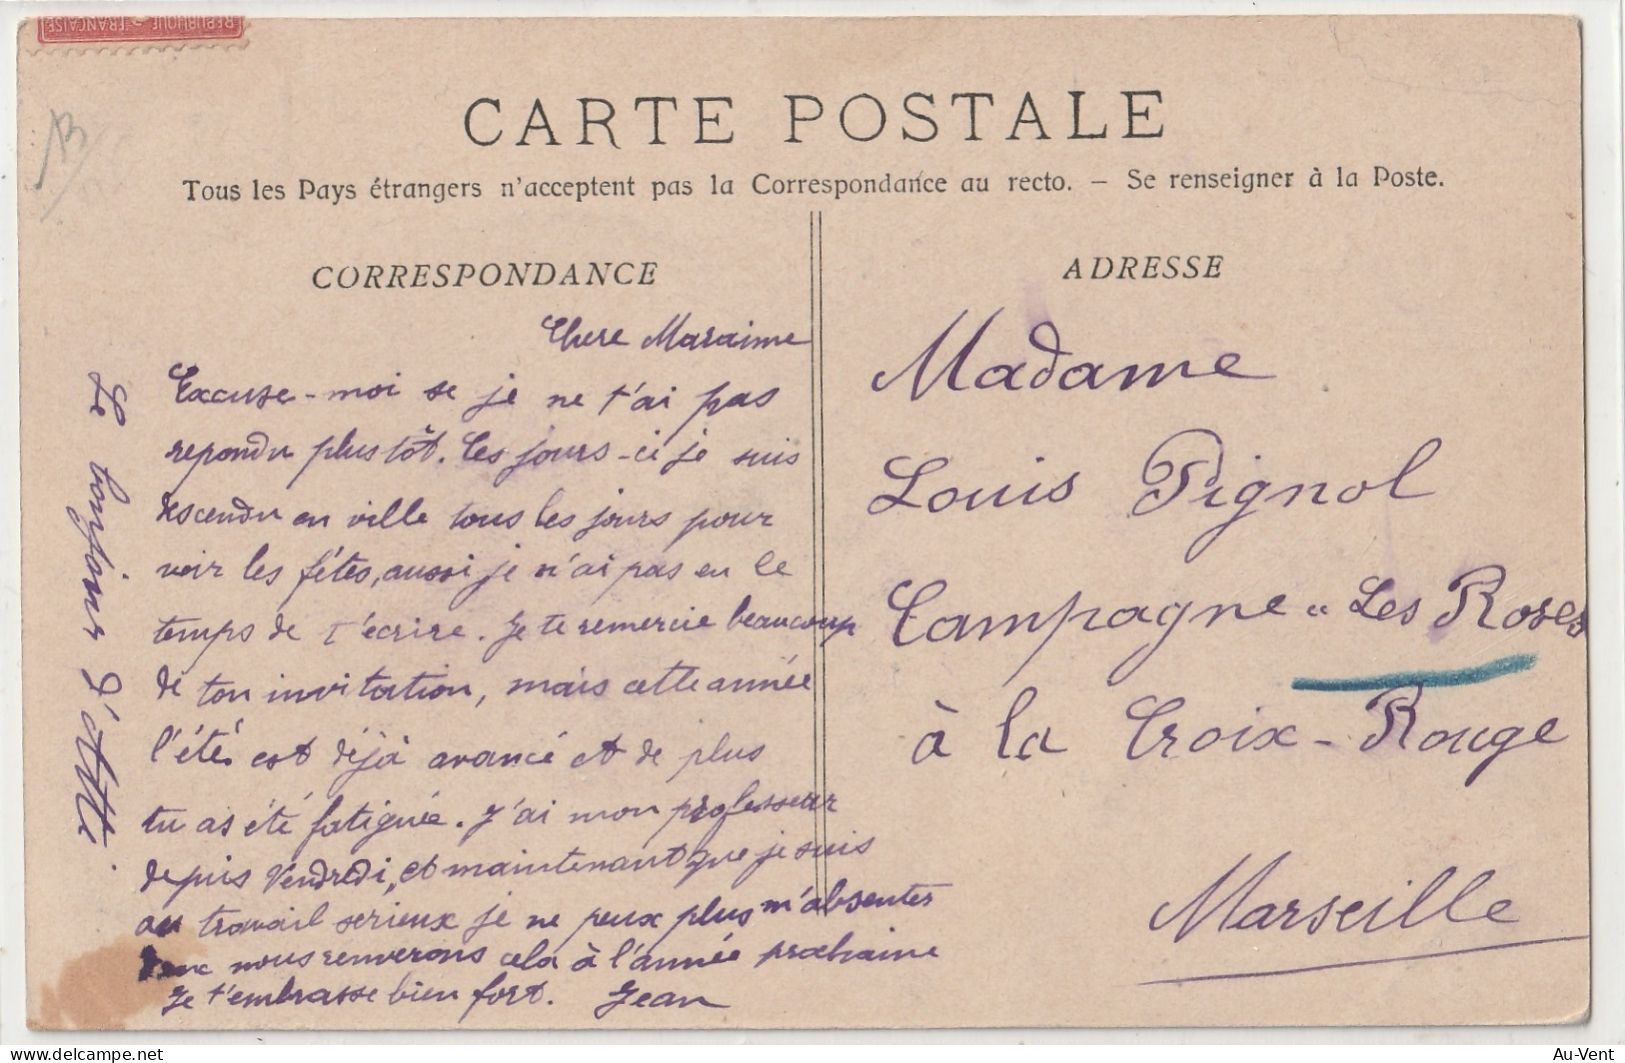 REPUBLIQUE FRANÇAISE
CARTE POSTALE
Tous les Pays étrangers n'acceptent pas la Correspondance au recto. – Se renseigner à la Poste.
CORRESPONDANCE
Chere Maraine
Excuse-moi se je ne t'ai pas
repondu plus tôt. Ces jours-ci je suis
descendu en ville tous les jours pour
voir les fêtes, aussi je n'ai pas eu le
temps de t'écrire. Je te remercie beaucoup
de ton invitation, mais cette année
l'été est déjà avancé et de plus
tu as été fatiguée. J'ai mon professeur
depuis Vendredi, et maintenant que je suis
au travail serieux je ne peux plus m'absenter
Donc nous renverons cela à l'année prochaine
Je t'embrasse bien fort. Jean
Le bonjour
ADRESSE
Madame
Louis Pignol
Campagne "Les Roses
à la Croix-Rouge
Marseille
delcampe.net
Au-Vent